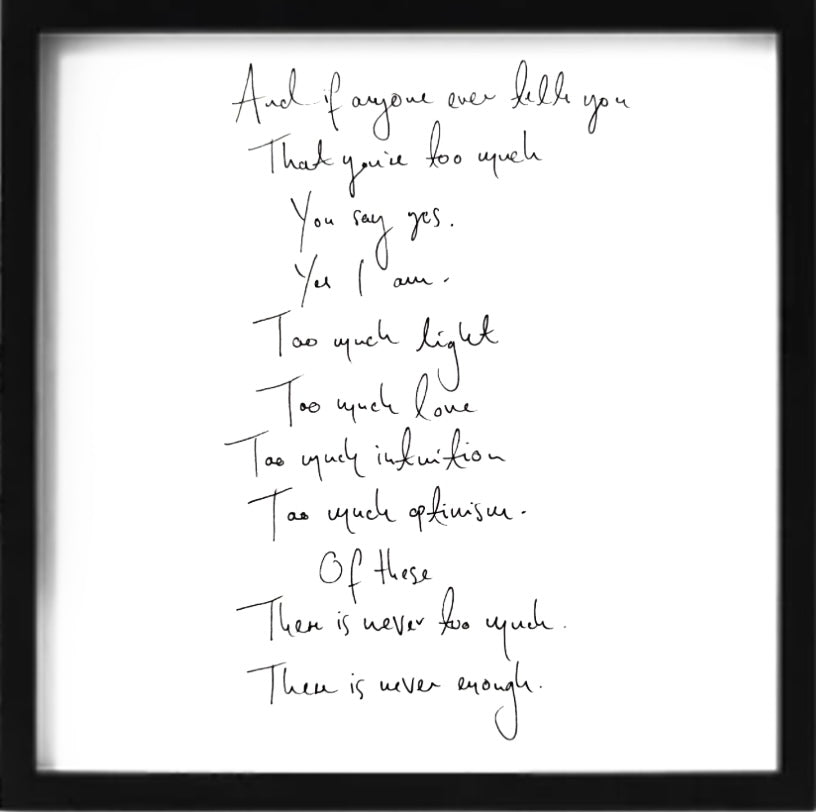 And if anyone ever tells you
That you're too much
You say yes.
Yes I am.
Too much light
Too much love
Too much intuition
Too much optimism.
Of these
There is never too much.
There is never enough.